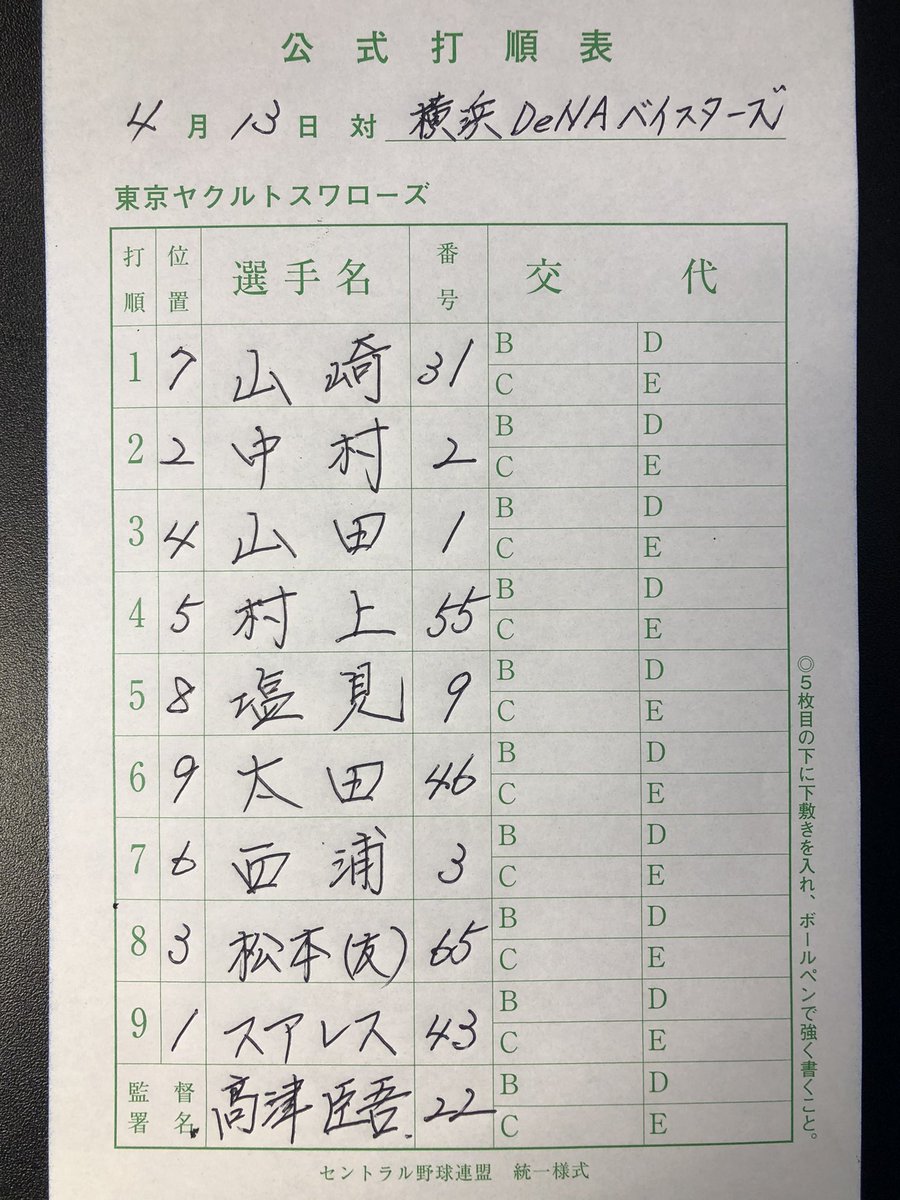 公式打順表
4月13日 対 横浜DeNAベイスターズ
東京ヤクルトスワローズ
打順 位置 選手名 番号 交代
1 7 山﨑 31 B D
C E
2 2 中村 2 B D
C E
3 4 山田 1 B D
C E
4 5 村上 55 B D
C E
5 8 塩見 9 B D
C E
6 9 太田 46 B D
C E
7 6 西浦 3 B D
C E
8 3 松本(友) 65 B D
C E
9 1 スアレス 43 B D
C E
監督署名 髙津臣吾 22 B D
C E
◎5枚目の下に下敷きを入れ、ボールペンで強く書くこと。
セントラル野球連盟 統一様式